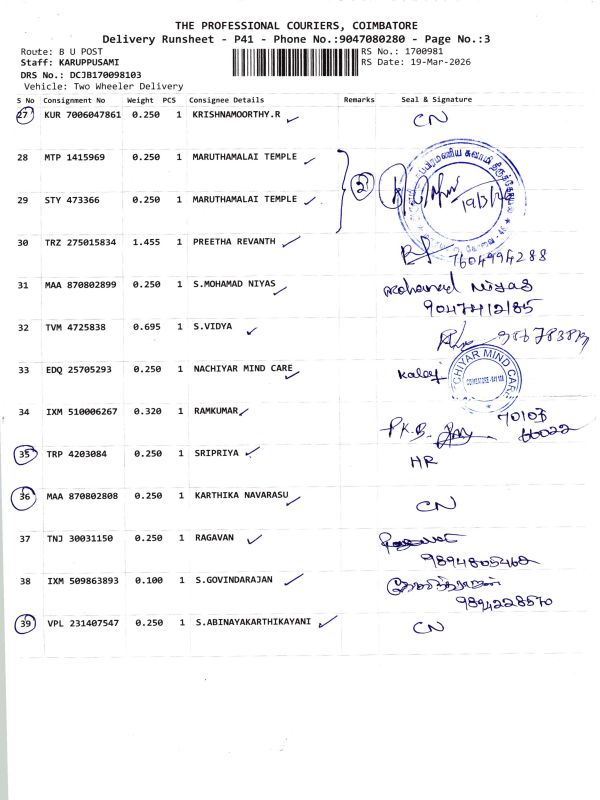 THE PROFESSIONAL COURIERS, COIMBATORE
Delivery Runsheet - P41 - Phone No.:9047080280 - Page No.:3
Route: B U POST RS No.: 1700981
Staff: KARUPPUSAMI RS Date: 19-Mar-2026
DRS No.: DCJB170098103
Vehicle: Two Wheeler Delivery
S No Consignment No Weight PCS Consignee Details Remarks Seal & Signature
27 KUR 7006047861 0.250 1 KRISHNAMOORTHY.R CN
28 MTP 1415969 0.250 1 MARUTHAMALAI TEMPLE 2
29 STY 473366 0.250 1 MARUTHAMALAI TEMPLE 19/3/
30 TRZ 275015834 1.455 1 PREETHA REVANTH
7604994288
31 MAA 870802899 0.250 1 S.MOHAMAD NIYAS Mohamed Niyas
9047412185
32 TVM 4725838 0.695 1 S.VIDYA
33 EDQ 25705293 0.250 1 NACHIYAR MIND CARE Kalai
CHIYAR MIND CARE
34 IXM 510006267 0.320 1 RAMKUMAR
P.K.B.
35 TRP 4203084 0.250 1 SRIPRIYA HR
36 MAA 870802808 0.250 1 KARTHIKA NAVARASU CN
37 TNJ 30031150 0.250 1 RAGAVAN
9894805460
38 IXM 509863893 0.100 1 S.GOVINDARAJAN
9894228570
39 VPL 231407547 0.250 1 S.ABINAYAKARTHIKAYANI CN